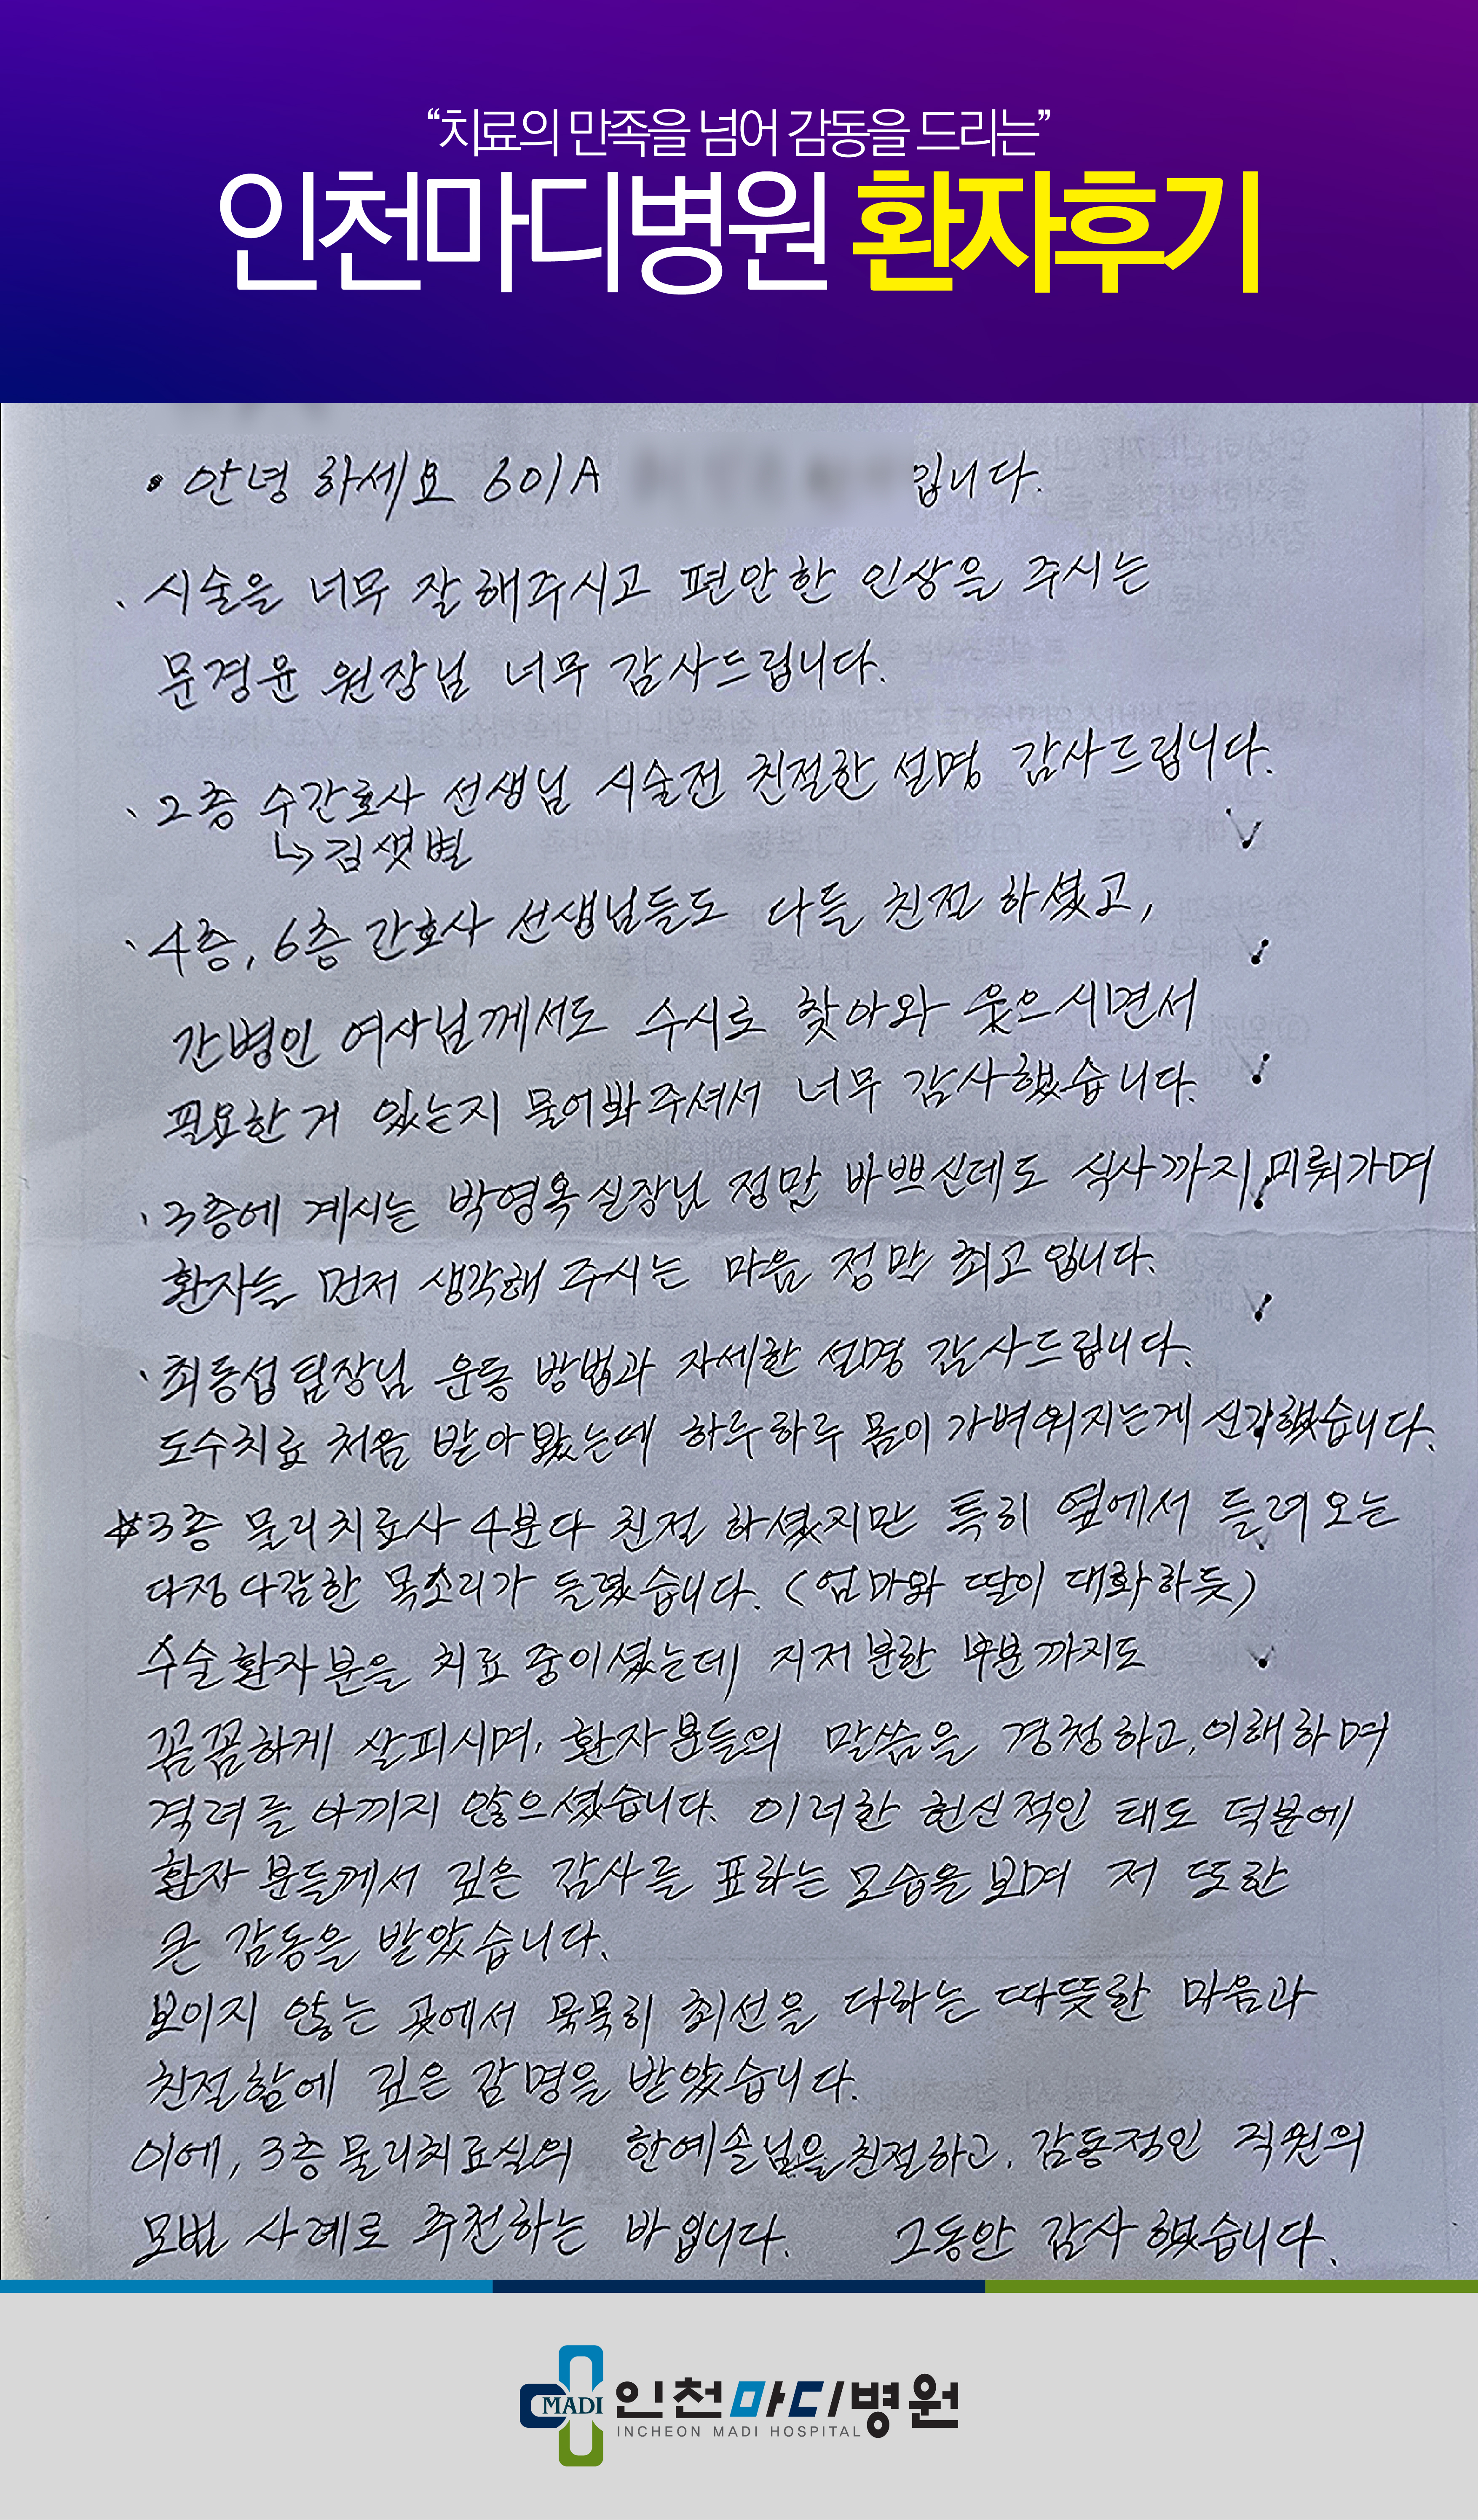 “치료의 만족을 넘어 감동을 드리는”
인천마디병원 환자후기
• 안녕 하세요 601A 입니다.
、시술을 너무 잘 해주시고 편안한 인상을 주시는
문경윤 원장님 너무 감사드립니다.
、2층 수간호사 선생님 시술전 친절한 설명 감사드립니다.
↳김샛별
、4층, 6층 간호사 선생님들도 다들 친절 하셨고,
간병인 여사님께서도 수시로 찾아와 웃으시면서
필요한거 있는지 물어봐주셔서 너무 감사했습니다.
、3층에 계시는 박영옥실장님 정말 바쁘신데도 식사까지 미뤄가며
환자를 먼저 생각해 주시는 마음 정말 최고 입니다.
、최동섭팀장님 운동 방법과 자세한 설명 감사드립니다.
도수치료 처음 받아봤는데 하루하루 몸이 가벼워지는게 신기했습니다.
#3층 물리치료사 4분다 친절 하셨지만 특히 옆에서 들려오는
다정다감한 목소리가 들렸습니다. (엄마와 딸이 대화하듯)
수술환자분을 치료 중이셨는데, 지저분한 부분까지도
꼼꼼하게 살피시며, 환자분들의 말씀을 경청하고, 이해하며
격려를 아끼지 않으셨습니다. 이러한 헌신적인 태도 덕분에
환자 분들께서 깊은 감사를 표하는 모습을 보며 저 또한
큰 감동을 받았습니다.
보이지 않는 곳에서 묵묵히 최선을 다하는 따뜻한 마음과
친절함에 깊은 감명을 받았습니다.
이에, 3층물리치료실의 한예솔님을 친절하고, 감동적인 직원의
모범 사례로 추천하는 바입니다. 그동안 감사했습니다.
MADI 인천마디병원
INCHEON MADI HOSPITAL